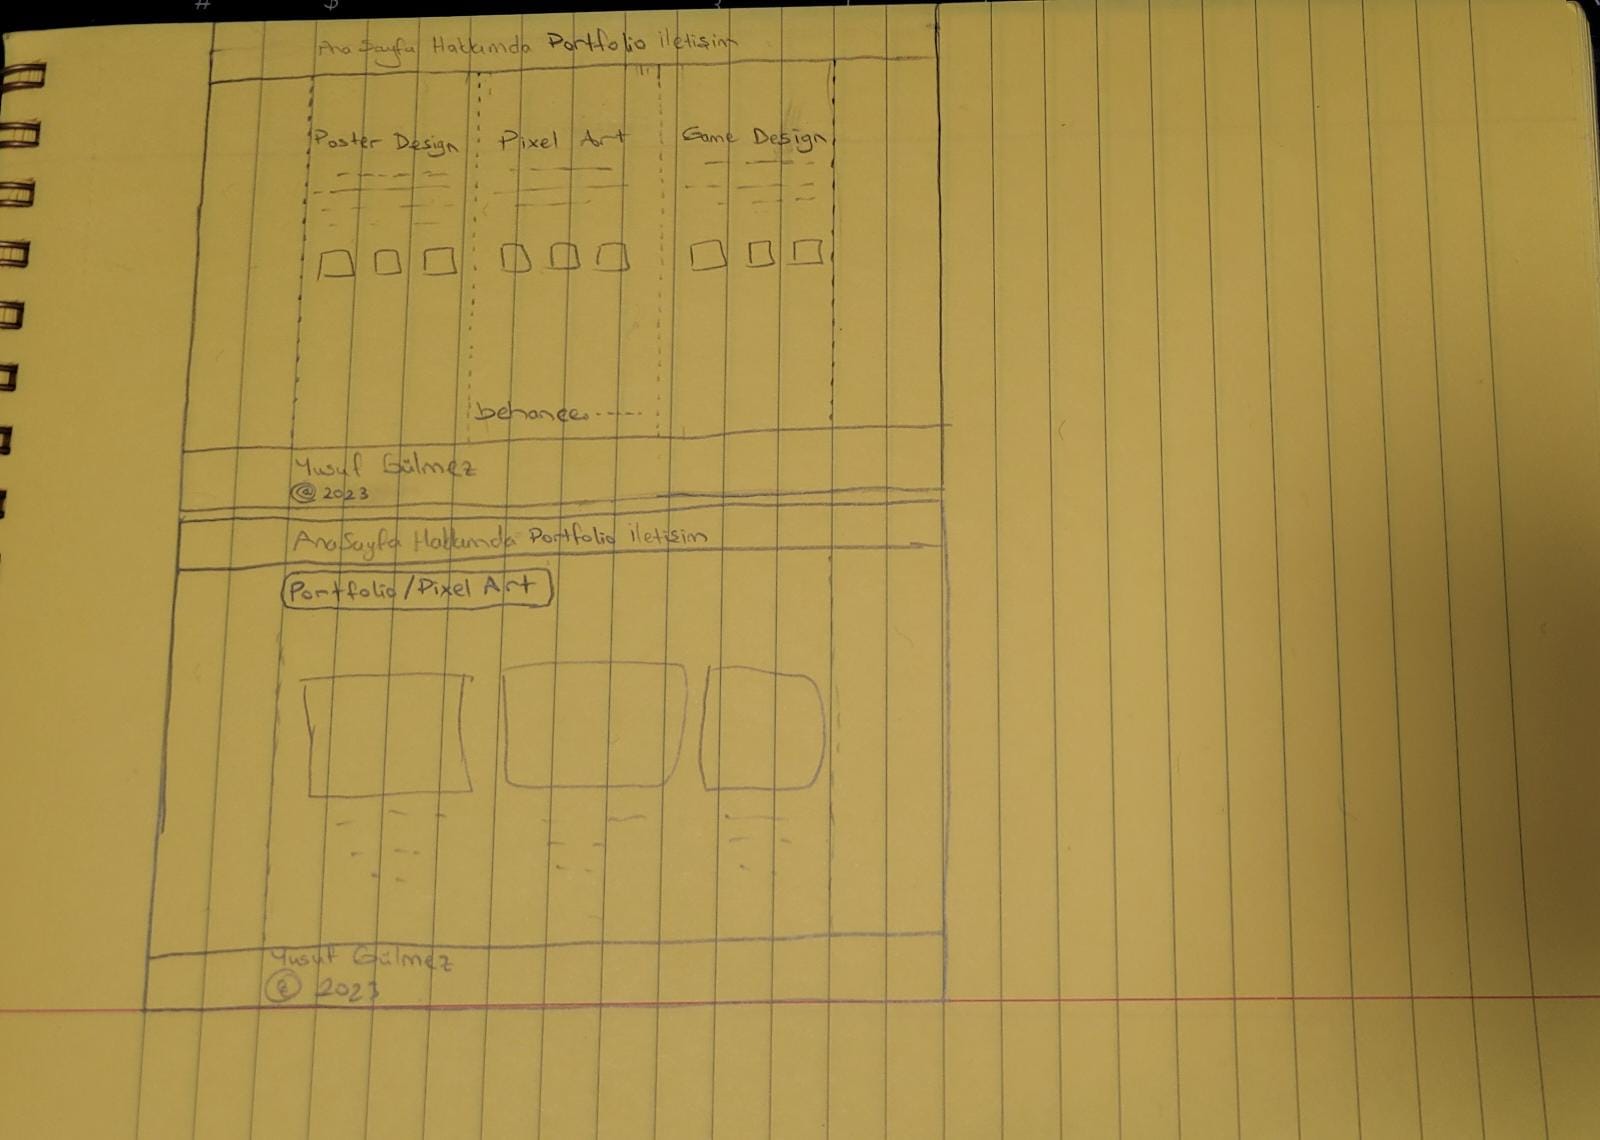 Ana Sayfa Hakkımda Portfolio iletişim
Poster Design Pixel Art Game Design
behance
Yusuf Gülmez
@ 2023
AnaSayfa Hakkımda Portfolio iletişim
Portfolio/Pixel Art
Yusuf Gülmez
@ 2023